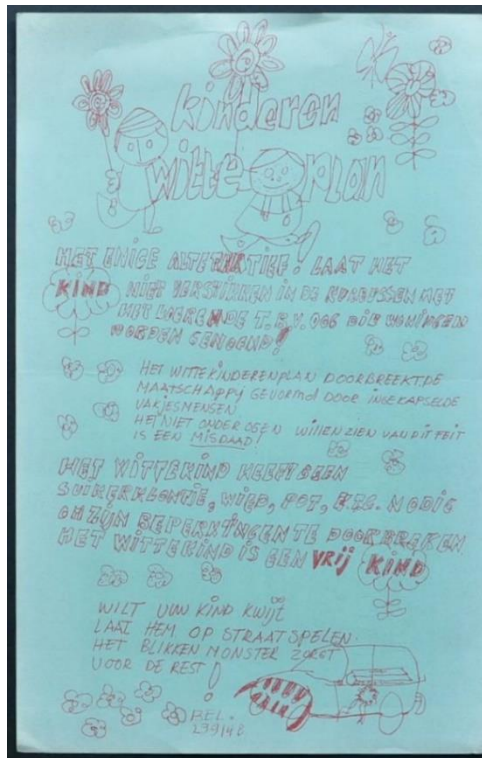 kinderen
witte plan
HET ENIGE ALTERNATIEF! LAAT HET
KIND NIET VERSTIKKEN IN DE KUBUSSEN MET
HET LOERENDE T.B.V. OOG DIE WONINGEN
WORDEN GENOEMD!
HET WITTEKINDERENPLAN DOORBREEKT DE
MAATSCHAPPY GEVORMD DOOR INGEKAPSELDE
VAKJESMENSEN
HET NIET ONDER OGEN WILLEN ZIEN VAN DIT FEIT
IS EEN MISDAAD!
HET WITTEKIND HEEFT GEEN
SUIKERKLONTJE, WIED, POT, E.T.C. NODIG
OM ZIJN BEPERKINGEN TE DOORBREKEN
HET WITTEKIND IS EEN VRIJ KIND
WILT UW KIND KWIJT
LAAT HEM OP STRAAT SPELEN.
HET BLIKKEN MONSTER ZORGT
VOOR DE REST!
BEL.